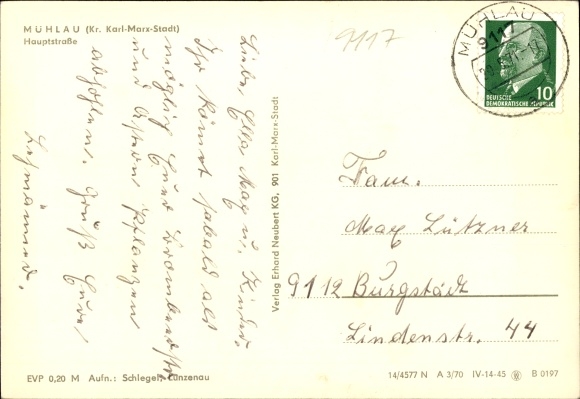 MÜHLAU (Kr. Karl-Marx-Stadt)
Hauptstraße
Liebe Ella Max u. Kinder.
Ihr könnt sobald als
möglich Eure Brombeerstr.
und Astern Pflanzen
abholen. Gruß Eure
Verlag Erhard Neubert KG, 901 Karl-Marx-Stadt
9117
MÜHLAU
9117
10
DEUTSCHE
DEMOKRATISCHE REPUBLIK
Fam.
Max Lützner
9112 Burgstädt
Lindenstr. 44
EVP 0,20 M Aufn.: Schlegel, Lunzenau
14/4577 N A 3/70 IV-14-45 B 0197